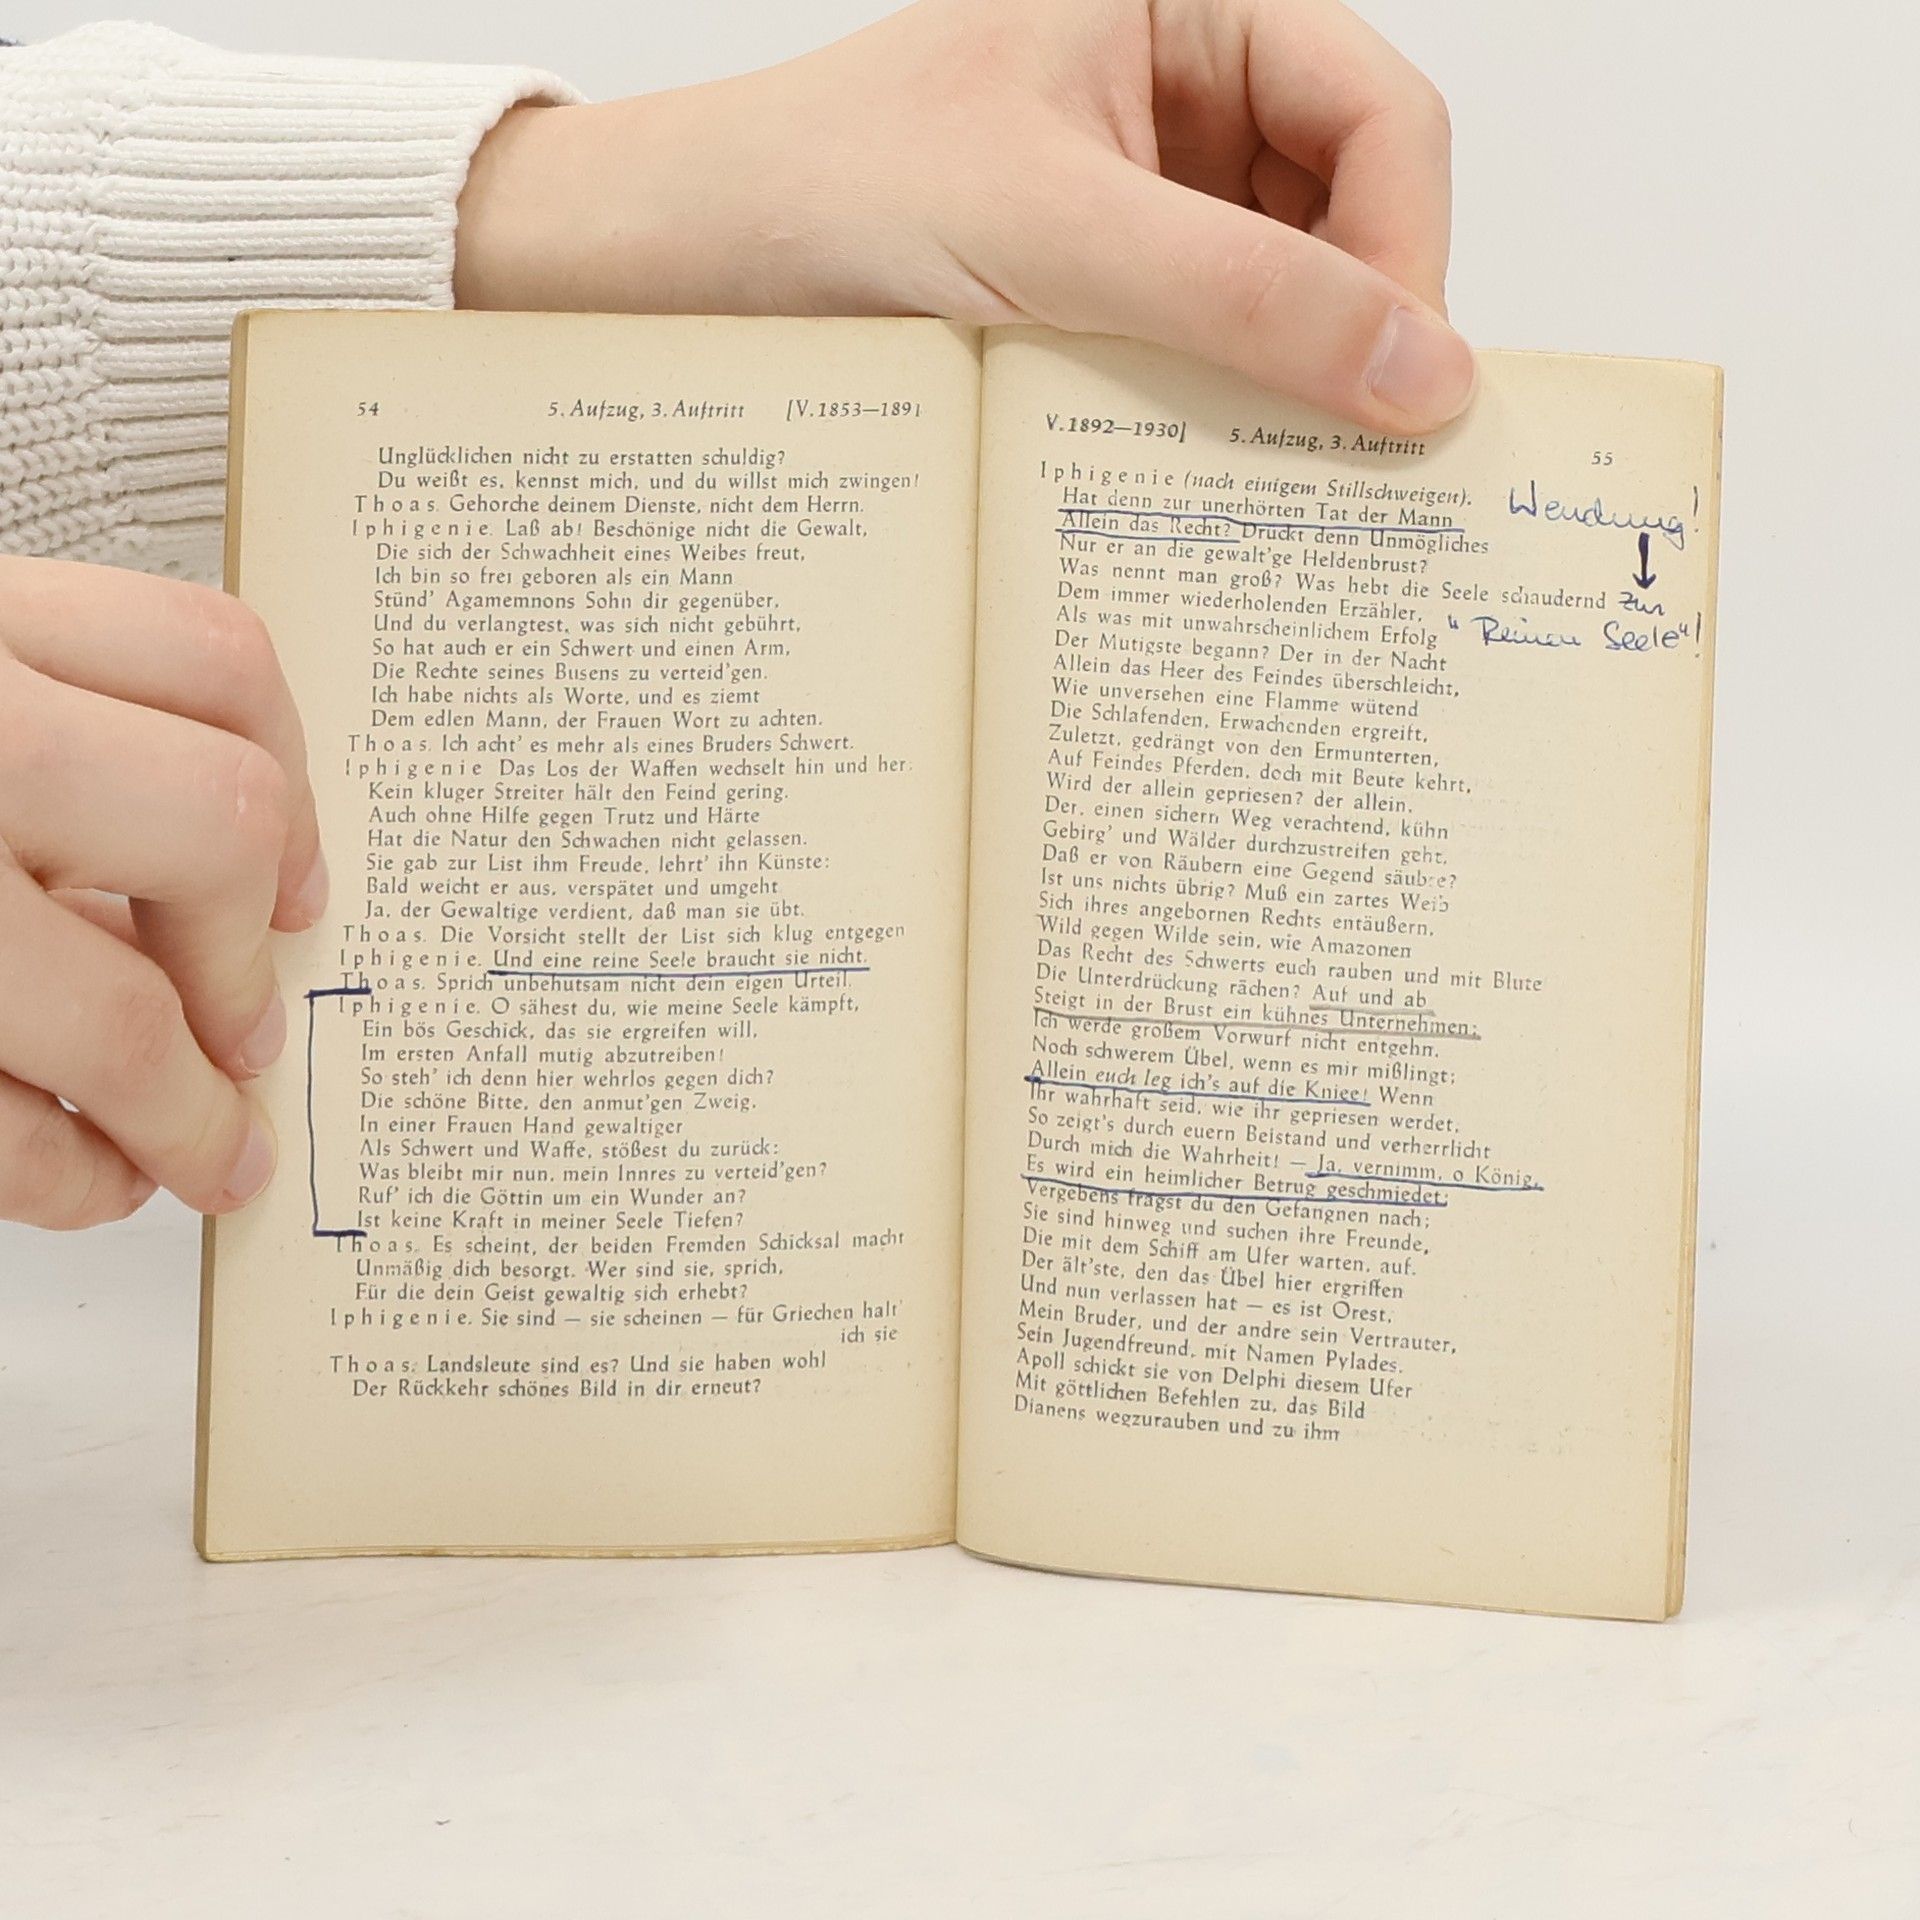 54 5. Aufzug, 3. Auftritt [V. 1853—1891
Unglücklichen nicht zu erstatten schuldig?
Du weißt es, kennst mich, und du willst mich zwingen!
Thoas. Gehorche deinem Dienste, nicht dem Herrn.
Iphigenie. Laß ab! Beschönige nicht die Gewalt,
Die sich der Schwachheit eines Weibes freut,
Ich bin so frei geboren als ein Mann
Stünd' Agamemnons Sohn dir gegenüber,
Und du verlangtest, was sich nicht gebührt,
So hat auch er ein Schwert und einen Arm,
Die Rechte seines Busens zu verteid'gen.
Ich habe nichts als Worte, und es ziemt
Dem edlen Mann, der Frauen Wort zu achten.
Thoas. Ich acht' es mehr als eines Bruders Schwert.
Iphigenie Das Los der Waffen wechselt hin und her:
Kein kluger Streiter hält den Feind gering.
Auch ohne Hilfe gegen Trutz und Härte
Hat die Natur den Schwachen nicht gelassen.
Sie gab zur List ihm Freude, lehrt' ihn Künste:
Bald weicht er aus, verspätet und umgeht
Ja, der Gewaltige verdient, daß man sie übt.
Thoas. Die Vorsicht stellt der List sich klug entgegen
Iphigenie. Und eine reine Seele braucht sie nicht.
Thoas. Sprich unbehutsam nicht dein eigen Urteil.
Iphigenie. O sähest du, wie meine Seele kämpft,
Ein bös Geschick, das sie ergreifen will,
Im ersten Anfall mutig abzutreiben!
So steh' ich denn hier wehrlos gegen dich?
Die schöne Bitte, den anmut'gen Zweig,
In einer Frauen Hand gewaltiger
Als Schwert und Waffe, stößest du zurück:
Was bleibt mir nun, mein Innres zu verteid'gen?
Ruf' ich die Göttin um ein Wunder an?
Ist keine Kraft in meiner Seele Tiefen?
Thoas. Es scheint, der beiden Fremden Schicksal macht
Unmäßig dich besorgt. Wer sind sie, sprich,
Für die dein Geist gewaltig sich erhebt?
Iphigenie. Sie sind — sie scheinen — für Griechen halt'
ich sie
Thoas. Landsleute sind es? Und sie haben wohl
Der Rückkehr schönes Bild in dir erneut?
V. 1892—1930] 5. Aufzug, 3. Auftritt 55
Iphigenie (nach einigem Stillschweigen).
Hat denn zur unerhörten Tat der Mann
Allein das Recht? Drückt denn Unmögliches
Nur er an die gewalt'ge Heldenbrust?
Was nennt man groß? Was hebt die Seele schaudernd
Dem immer wiederholenden Erzähler,
Als was mit unwahrscheinlichem Erfolg
Der Mutigste begann? Der in der Nacht
Allein das Heer des Feindes überschleicht,
Wie unversehen eine Flamme wütend
Die Schlafenden, Erwachenden ergreift,
Zuletzt, gedrängt von den Ermunterten,
Auf Feindes Pferden, doch mit Beute kehrt,
Wird der allein gepriesen? der allein,
Der, einen sichern Weg verachtend, kühn
Gebirg' und Wälder durchzustreifen geht,
Daß er von Räubern eine Gegend säubre?
Ist uns nichts übrig? Muß ein zartes Weib
Sich ihres angebornen Rechts entäußern,
Wild gegen Wilde sein, wie Amazonen
Das Recht des Schwerts euch rauben und mit Blute
Die Unterdrückung rächen? Auf und ab
Steigt in der Brust ein kühnes Unternehmen:
Ich werde großem Vorwurf nicht entgehn,
Noch schwerem Übel, wenn es mir mißlingt;
Allein euch leg ich's auf die Kniee! Wenn
Ihr wahrhaft seid, wie ihr gepriesen werdet,
So zeigt's durch euern Beistand und verherrlicht
Durch mich die Wahrheit! — Ja, vernimm, o König,
Es wird ein heimlicher Betrug geschmiedet:
Vergebens fragst du den Gefangnen nach;
Sie sind hinweg und suchen ihre Freunde,
Die mit dem Schiff am Ufer warten, auf.
Der ält'ste, den das Übel hier ergriffen
Und nun verlassen hat — es ist Orest,
Mein Bruder, und der andre sein Vertrauter,
Sein Jugendfreund, mit Namen Pylades.
Apoll schickt sie von Delphi diesem Ufer
Mit göttlichen Befehlen zu, das Bild
Dianens wegzurauben und zu ihm
Wendung!
zur
"Reinen Seele"!